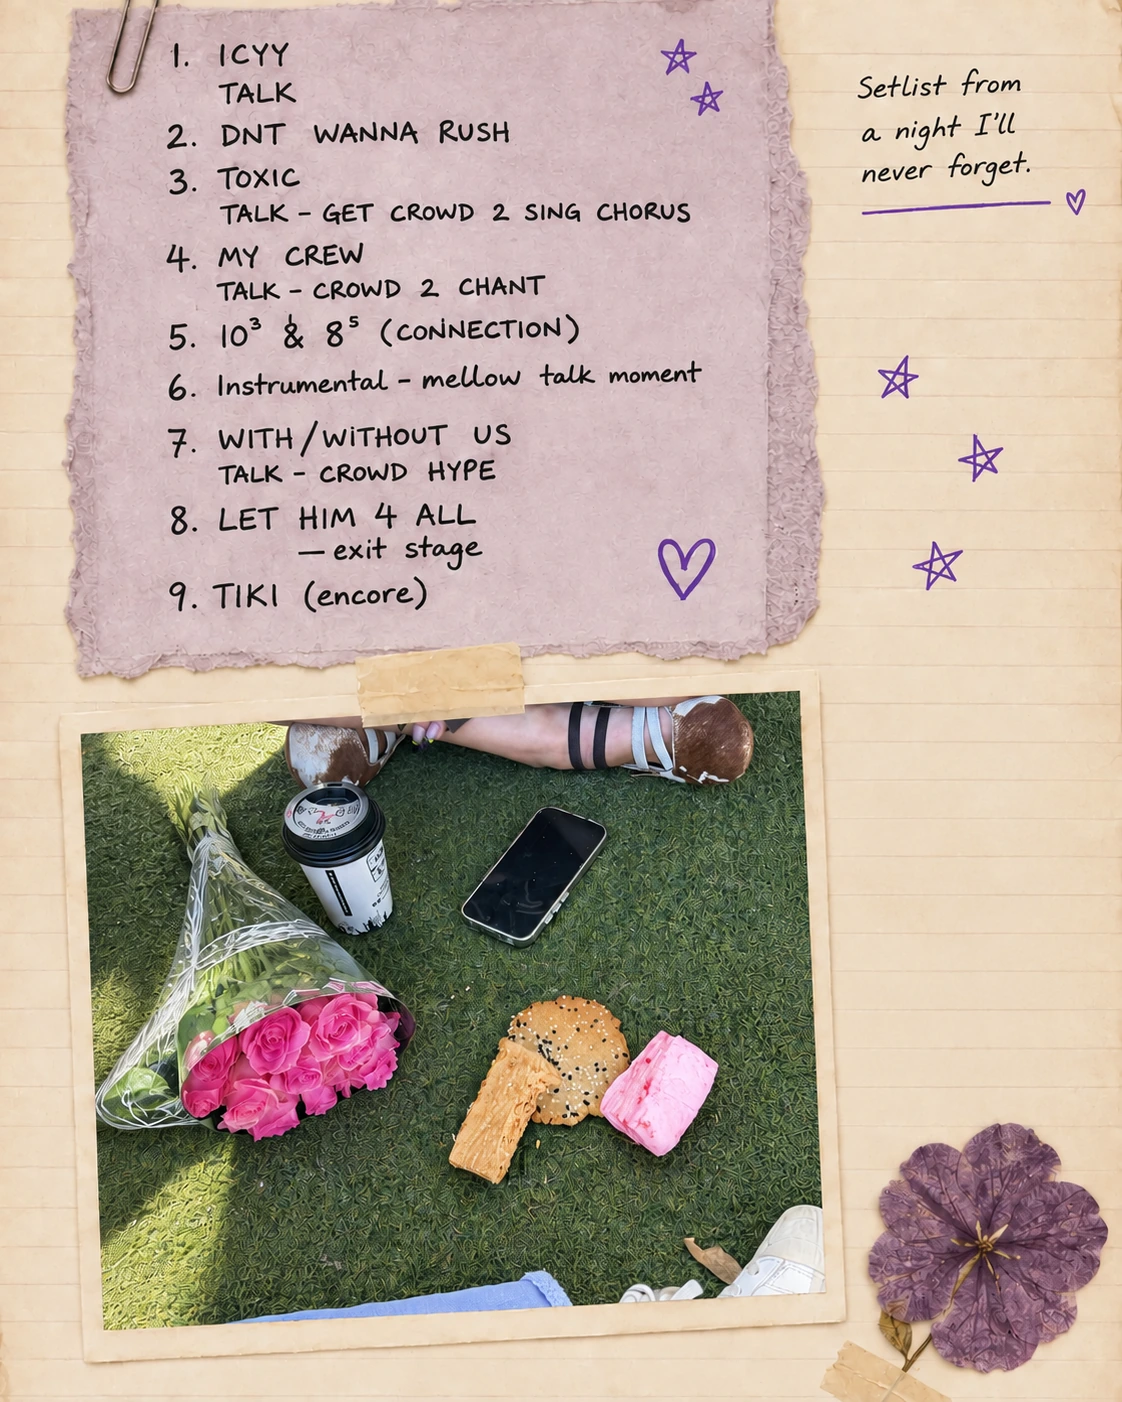 1. ICYY
TALK
2. DNT WANNA RUSH
3. TOXIC
TALK - GET CROWD 2 SING CHORUS
4. MY CREW
TALK - CROWD 2 CHANT
5. 10³ & 8⁵ (CONNECTION)
6. Instrumental - mellow talk moment
7. WITH/WITHOUT US
TALK - CROWD HYPE
8. LET HIM 4 ALL
— exit stage
9. TIKI (encore)
Setlist from
a night I'll
never forget.